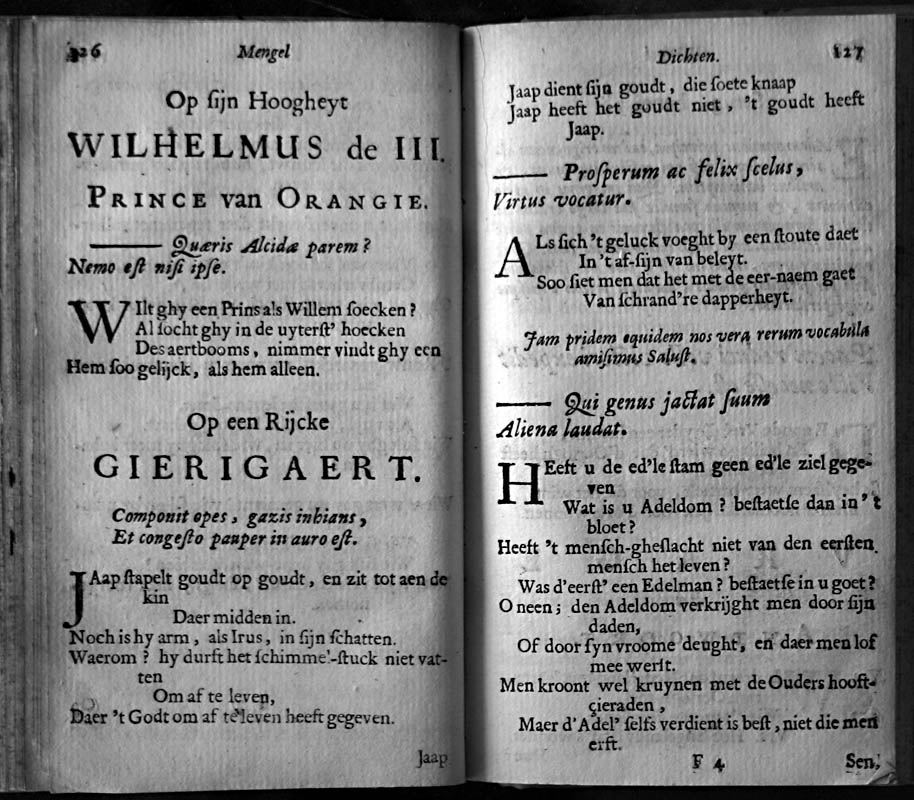 126 Mengel
Op ſijn Hoogheyt
WILHELMUS de III.
PRINCE van ORANGIE.
Quæris Alcidæ parem?
Nemo eſt niſi ipſe.
WIlt ghy een Prins als Willem ſoecken?
Al ſocht ghy in de uyterſt' hoecken
Des aertbooms, nimmer vindt ghy een
Hem ſoo gelijck, als hem alleen.
Op een Rijcke
GIERIGAERT.
Componit opes, gazis inhians,
Et congeſto pauper in auro eſt.
JAap ſtapelt goudt op goudt, en zit tot aen de
kin
Daer midden in.
Noch is hy arm, als Irus, in ſijn ſchatten.
Waerom? hy durft het ſchimmel-ſtuck niet vat-
ten
Om af te leven,
Daer 't Godt om af te leven heeft gegeven.
Jaap
Dichten. 127
Jaap dient ſijn goudt, die ſoete knaap
Jaap heeft het goudt niet, 't goudt heeft
Jaap.
Proſperum ac felix ſcelus,
Virtus vocatur.
ALs ſich 't geluck voeght by een ſtoute daet
In 't af-ſijn van beleyt.
Soo ſiet men dat het met de eer-naem gaet
Van ſchrand're dapperheyt.
Jam pridem equidem nos vera rerum vocabula
amiſimus Saluſt.
Qui genus jactat ſuum
Aliena laudat.
HEeft u de ed'le ſtam geen ed'le ziel gege-
ven
Wat is u Adeldom? beſtaetſe dan in 't
bloet?
Heeft 't menſch-gheſlacht niet van den eerſten
menſch het leven?
Was d'eerſt' een Edelman? beſtaetſe in u goet?
O neen; den Adeldom verkrijght men door ſijn
daden,
Of door ſyn vroome deught, en daer men lof
mee werſt.
Men kroont wel kruynen met de Ouders hooft-
çieraden,
Maer d'Adel' ſelfs verdient is beſt, niet die men
erft.
F 4 Sen.